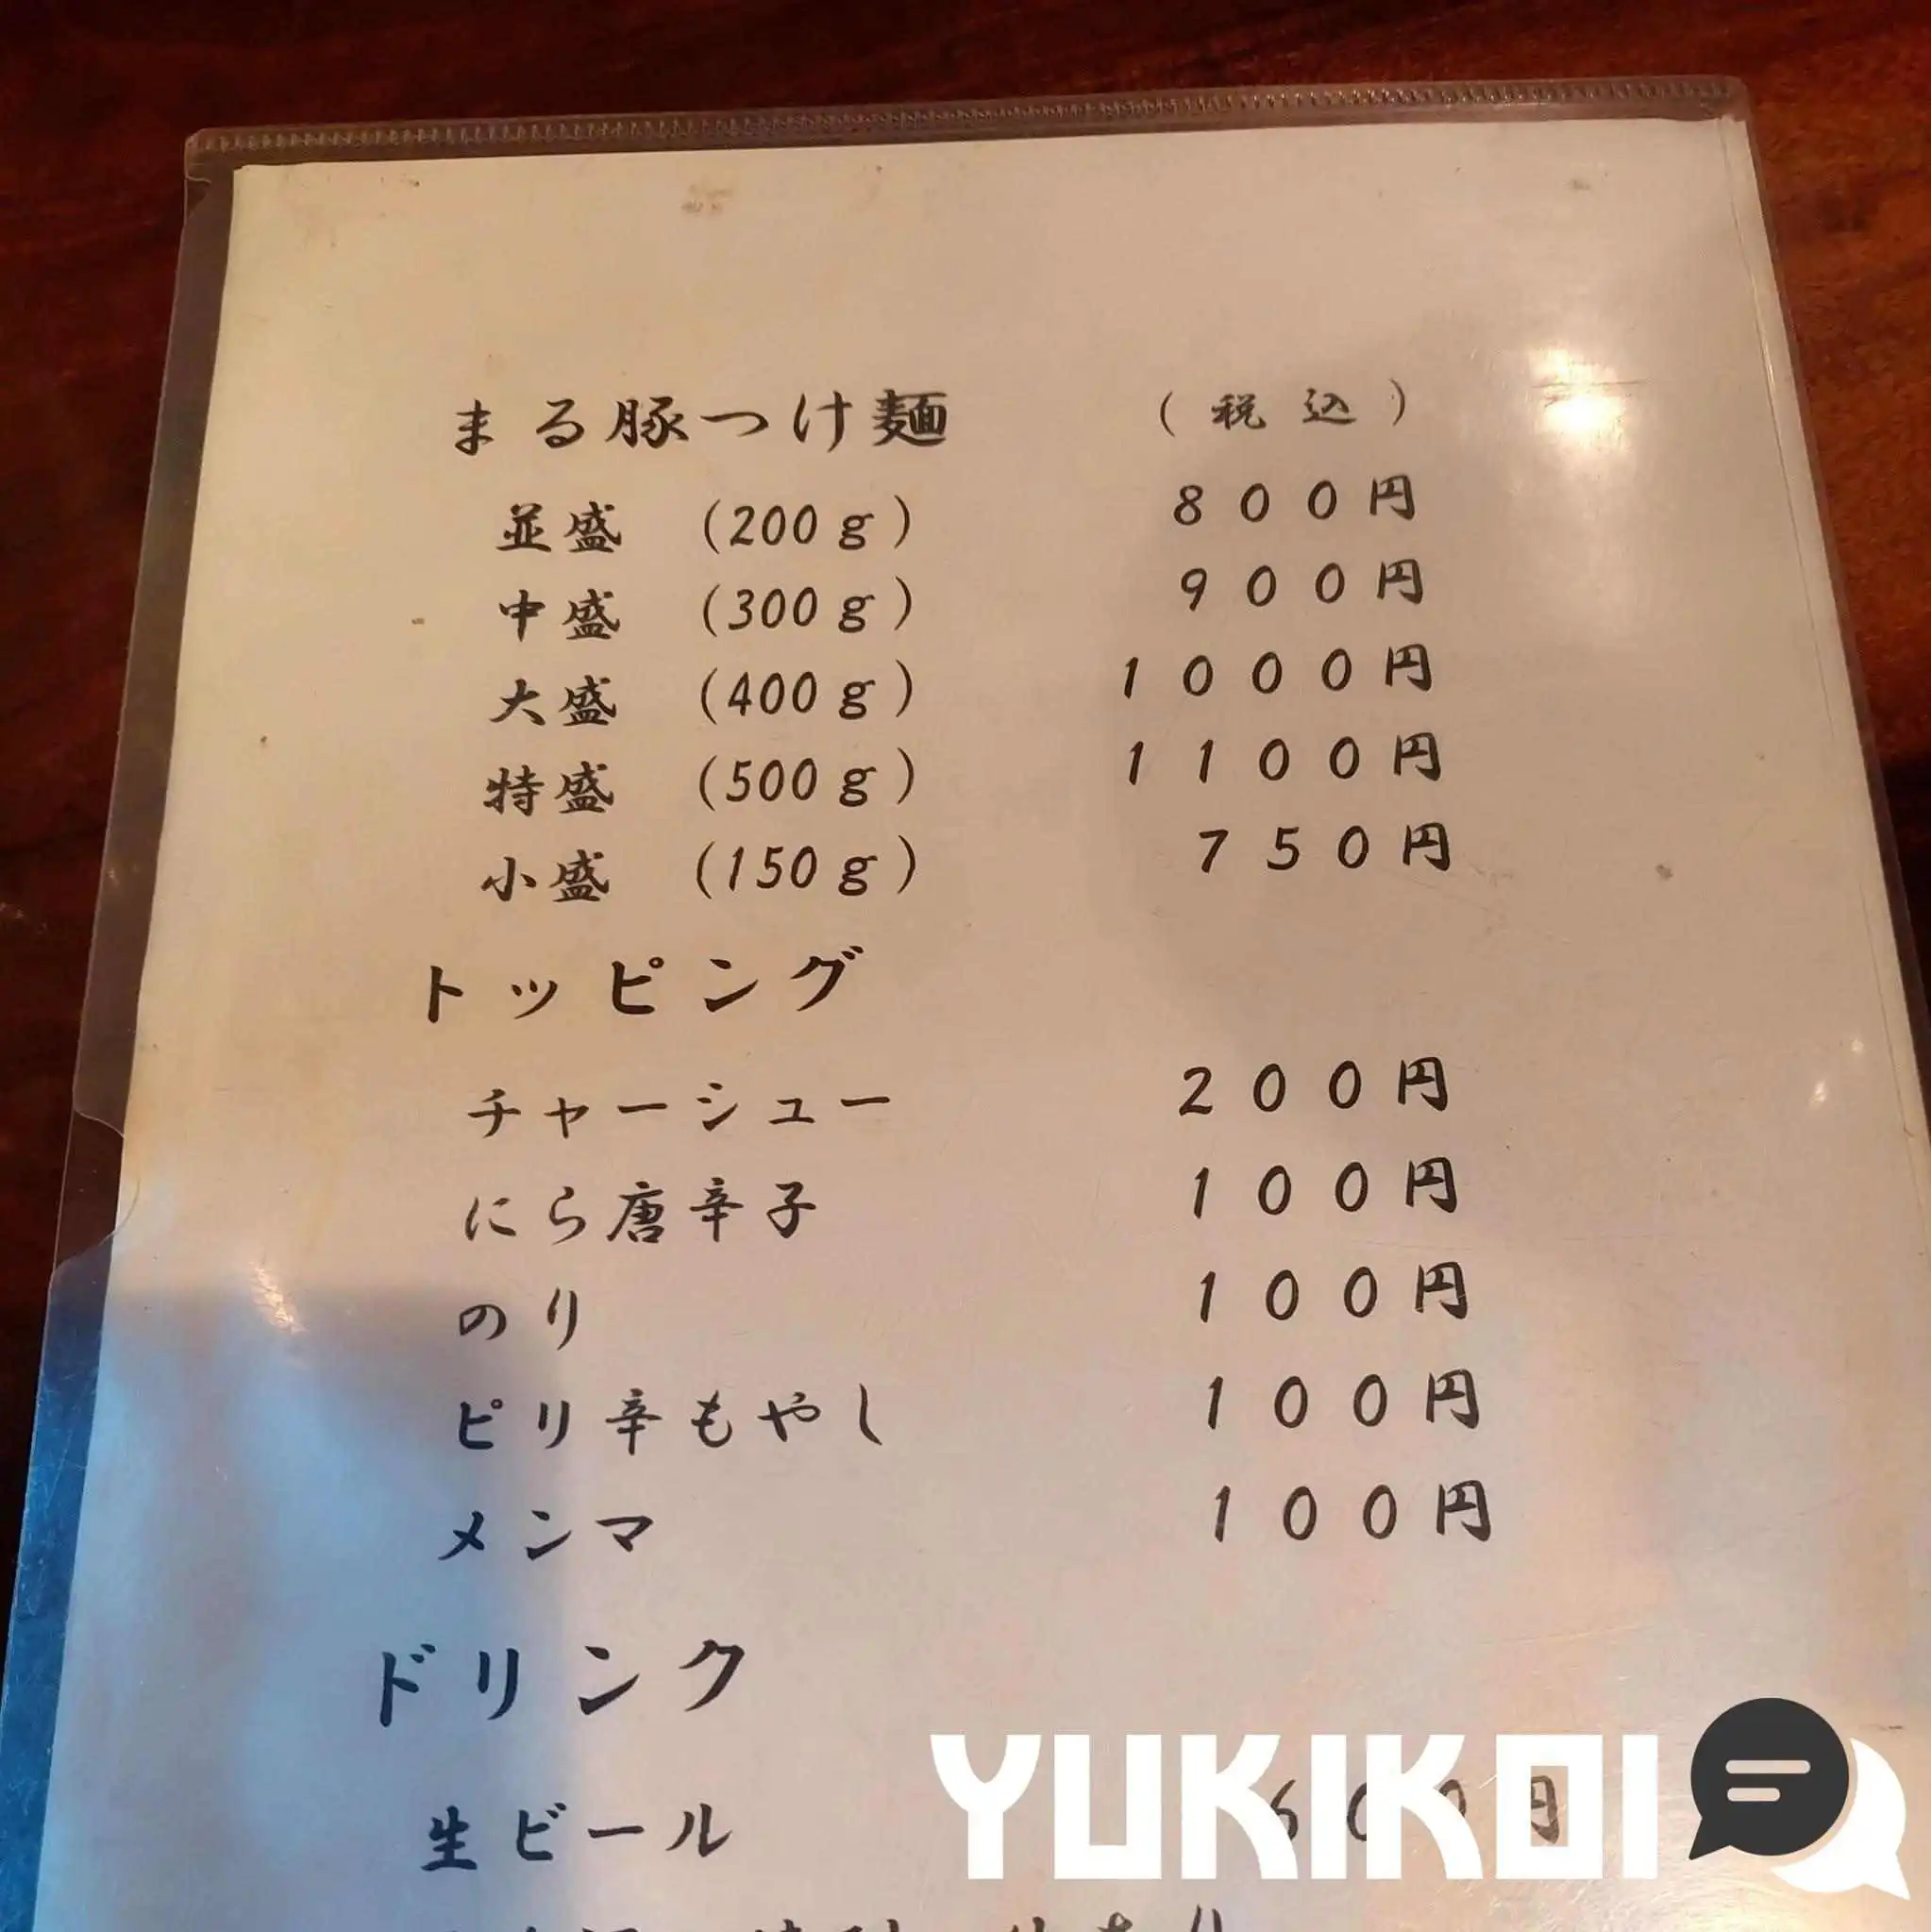 まる豚つけ麺 (税込)
並盛 (200g) 800円
中盛 (300g) 900円
大盛 (400g) 1000円
特盛 (500g) 1100円
小盛 (150g) 750円
トッピング
チャーシュー 200円
にら唐辛子 100円
のり 100円
ピリ辛もやし 100円
メンマ 100円
ドリンク
生ビール 600円
YUKIKOI